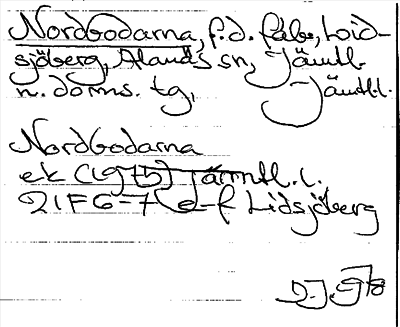 Nordbodarna, f.d. fäb., Lid-
sjöberg, Alanäs sn, Jämtl.
n. doms. tg, Jämtl.l.
Nordbodarna
ek (1975) Jämtl. l.
21F 6-7 e-f Lidsjöberg